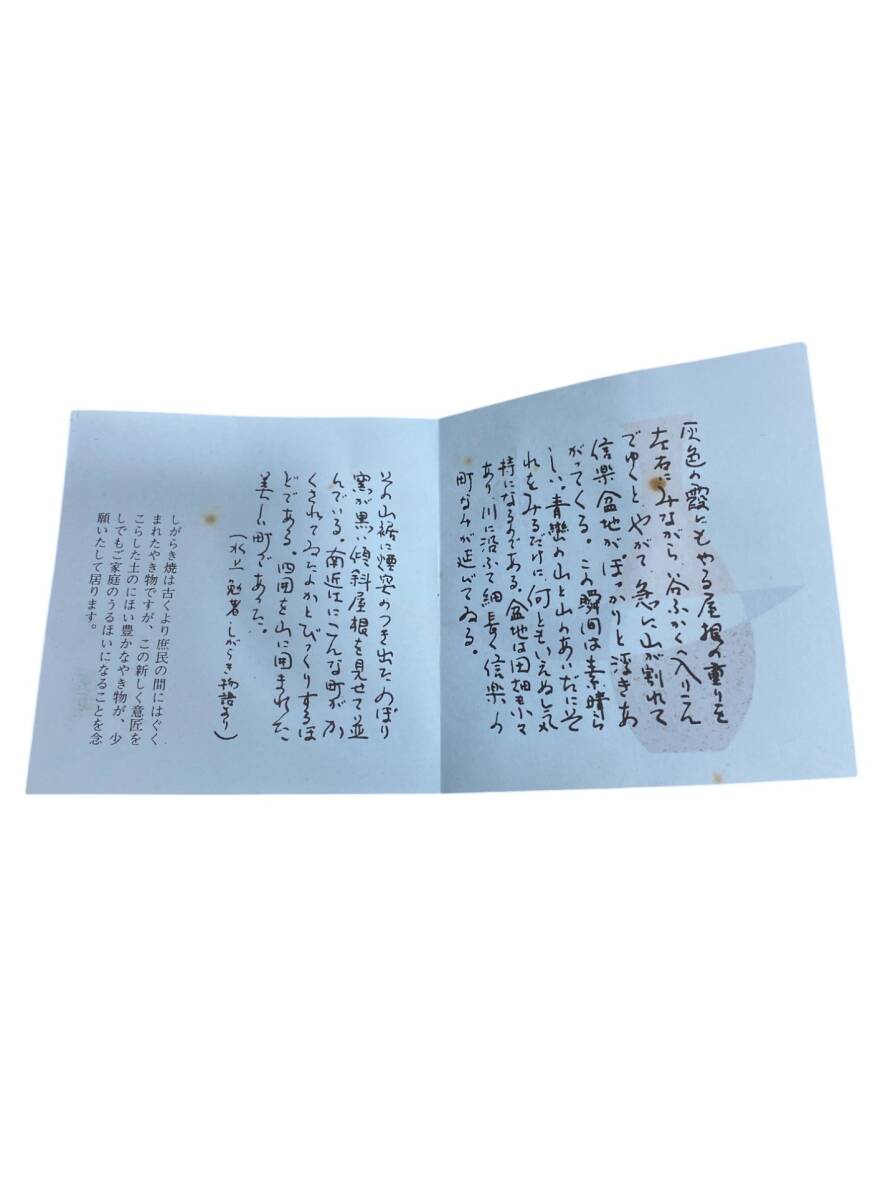 灰色の霞にもやる屋根の重りを
左右にみながら、谷ふかく入りこん
でゆくと、やがて、急に山が割れて
信楽盆地がぽっかりと浮きあ
がってくる。この瞬間は素晴ら
しい。青巒の山と山のあいだにそ
れをみるだけに、何ともいえぬ気
持になるのである。盆地は田畑も小々
あり、川に沿ふて細長く信楽の
町なみが延びてゐる。
その山裾に煙突のつき出たのぼり
窯が黒い傾斜屋根を見せて並
んでいる。南近江にこんな町がか
くされてゐたかとびっくりするほ
どである。四囲を山に囲まれた
美しい町であった。
(水上勉著・しがらき物語より)
しがらき焼は古くより庶民の間にはぐく
まれたやき物ですが、この新しく意匠を
こらした土のにほい豊かなやき物が、少
しでもご家庭のうるほいになることを念
願いたして居ります。